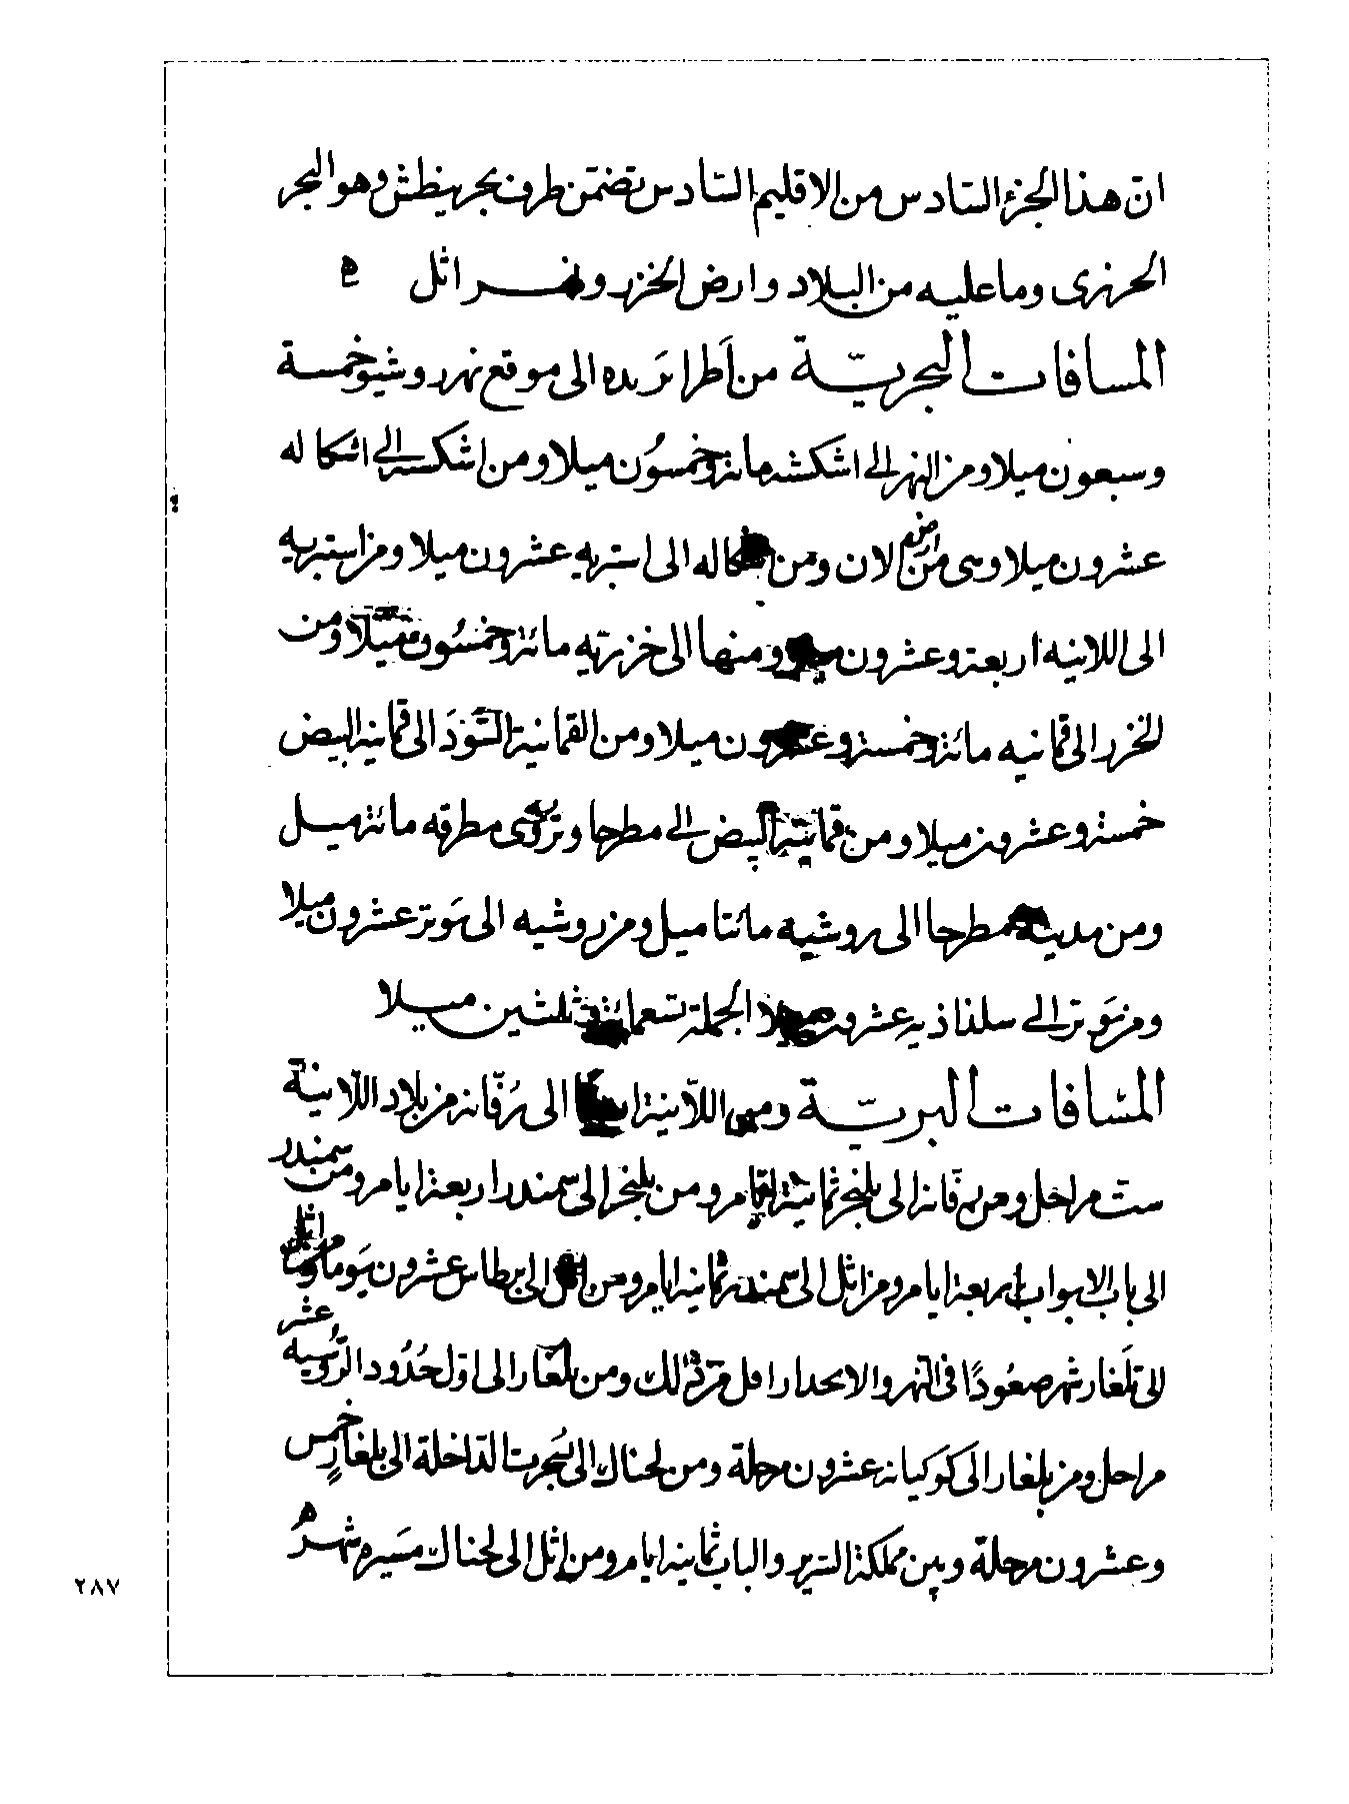 ان هذا الجزء السادس من الاقليم السادس تضمن طرف بحر نيطش وهو البحر
الخزرى وما عليه من البلاد وارض الخزر ونهر اثل ه
المسافات البحرية من اطرابزيده الى موقع نهر روشيو خمسة
وسبعون ميلا ومن النهر الى اشكشه مائة وخمسون ميلا ومن اشكسيه الى اشكاله
عشرون ميلا وهى من ارض لان ومن اشكاله الى استبريه عشرون ميلا ومن استبريه
الى اللانيه اربعة وعشرون ومنها الى خزريه مائة وخمسون ميلا ومن
الخزر الى قمانيه مائة وخمسة وعشرون ميلا ومن القمانية السود الى قمانية البيض
خمسة وعشرون ميلا ومن قمانية البيض الى مطرحا وتروى مطرقه مائة ميل
ومن مدينة مطرحا الى روشيه مائتا ميل ومن روشيه الى بوتر عشرون ميلا
ومن بوتر الى سلذاذيه عشرون ميلا الجملة تسعمائة وثلثين ميلا
المسافات البرية ومن اللانية الى برقانة من بلاد اللانية
ست مراحل ومن برقانة الى بلنجر ثمانية ايام ومن بلنجر الى سمندر اربعة ايام ومن سمندر
الى باب الابواب اربعة ايام ومن اثل الى سمندر ثمانية ايام ومن اثل الى برطاس عشرون يوما ومن اثل
الى بلغار شهر صعودا فى النهر والانحدار اقل من ذلك ومن بلغار الى اول حدود الروسيه عشر
مراحل ومن بلغار الى كوكيانة عشرون مرحلة ومن لحناك الى بسجرت الداخلة الى بلغار خمس
وعشرون مرحلة وبين مملكة السرير والباب ثمانية ايام ومن اثل الى لحناك مسيره شهر ه
٢٨٧